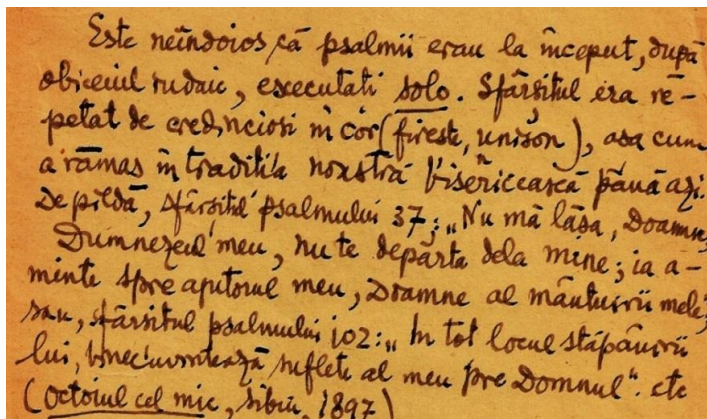 Este neîndoios, că psalmii erau la început, după
obiceiul iudaic, executati solo. Sfârşitul era re-
petat de credincioşi in cor (fireste, unison), aşa cum
a rămas în traditia noastră bisericească până azi.
De pildă, sfârşitul psalmului 37: „Nu mă lăsa, Doamne,
Dumnezeul meu, nu te depărta dela mine; ia a-
minte spre ajutorul meu, Doamne al mântuirii mele",
sau, sfârsitul psalmului 102: „In tot locul stăpânirii
lui, binecuvintează suflete al meu pre Domnul". etc
(Octoiul cel mic, Sibiu, 1897)